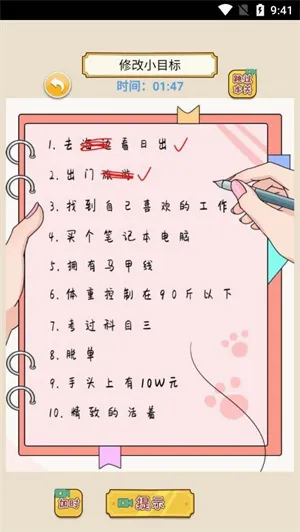 9:41
修改小目标
时间：01:47
跳过本关
1. 去海边看日出
2. 出门旅游
3. 找到自己喜欢的工作
4. 买个笔记本电脑
5. 拥有马甲线
6. 体重控制在90斤以下
7. 考过科目三
8. 脱单
9. 手头上有10W元
10. 精致的活着
加时
提示